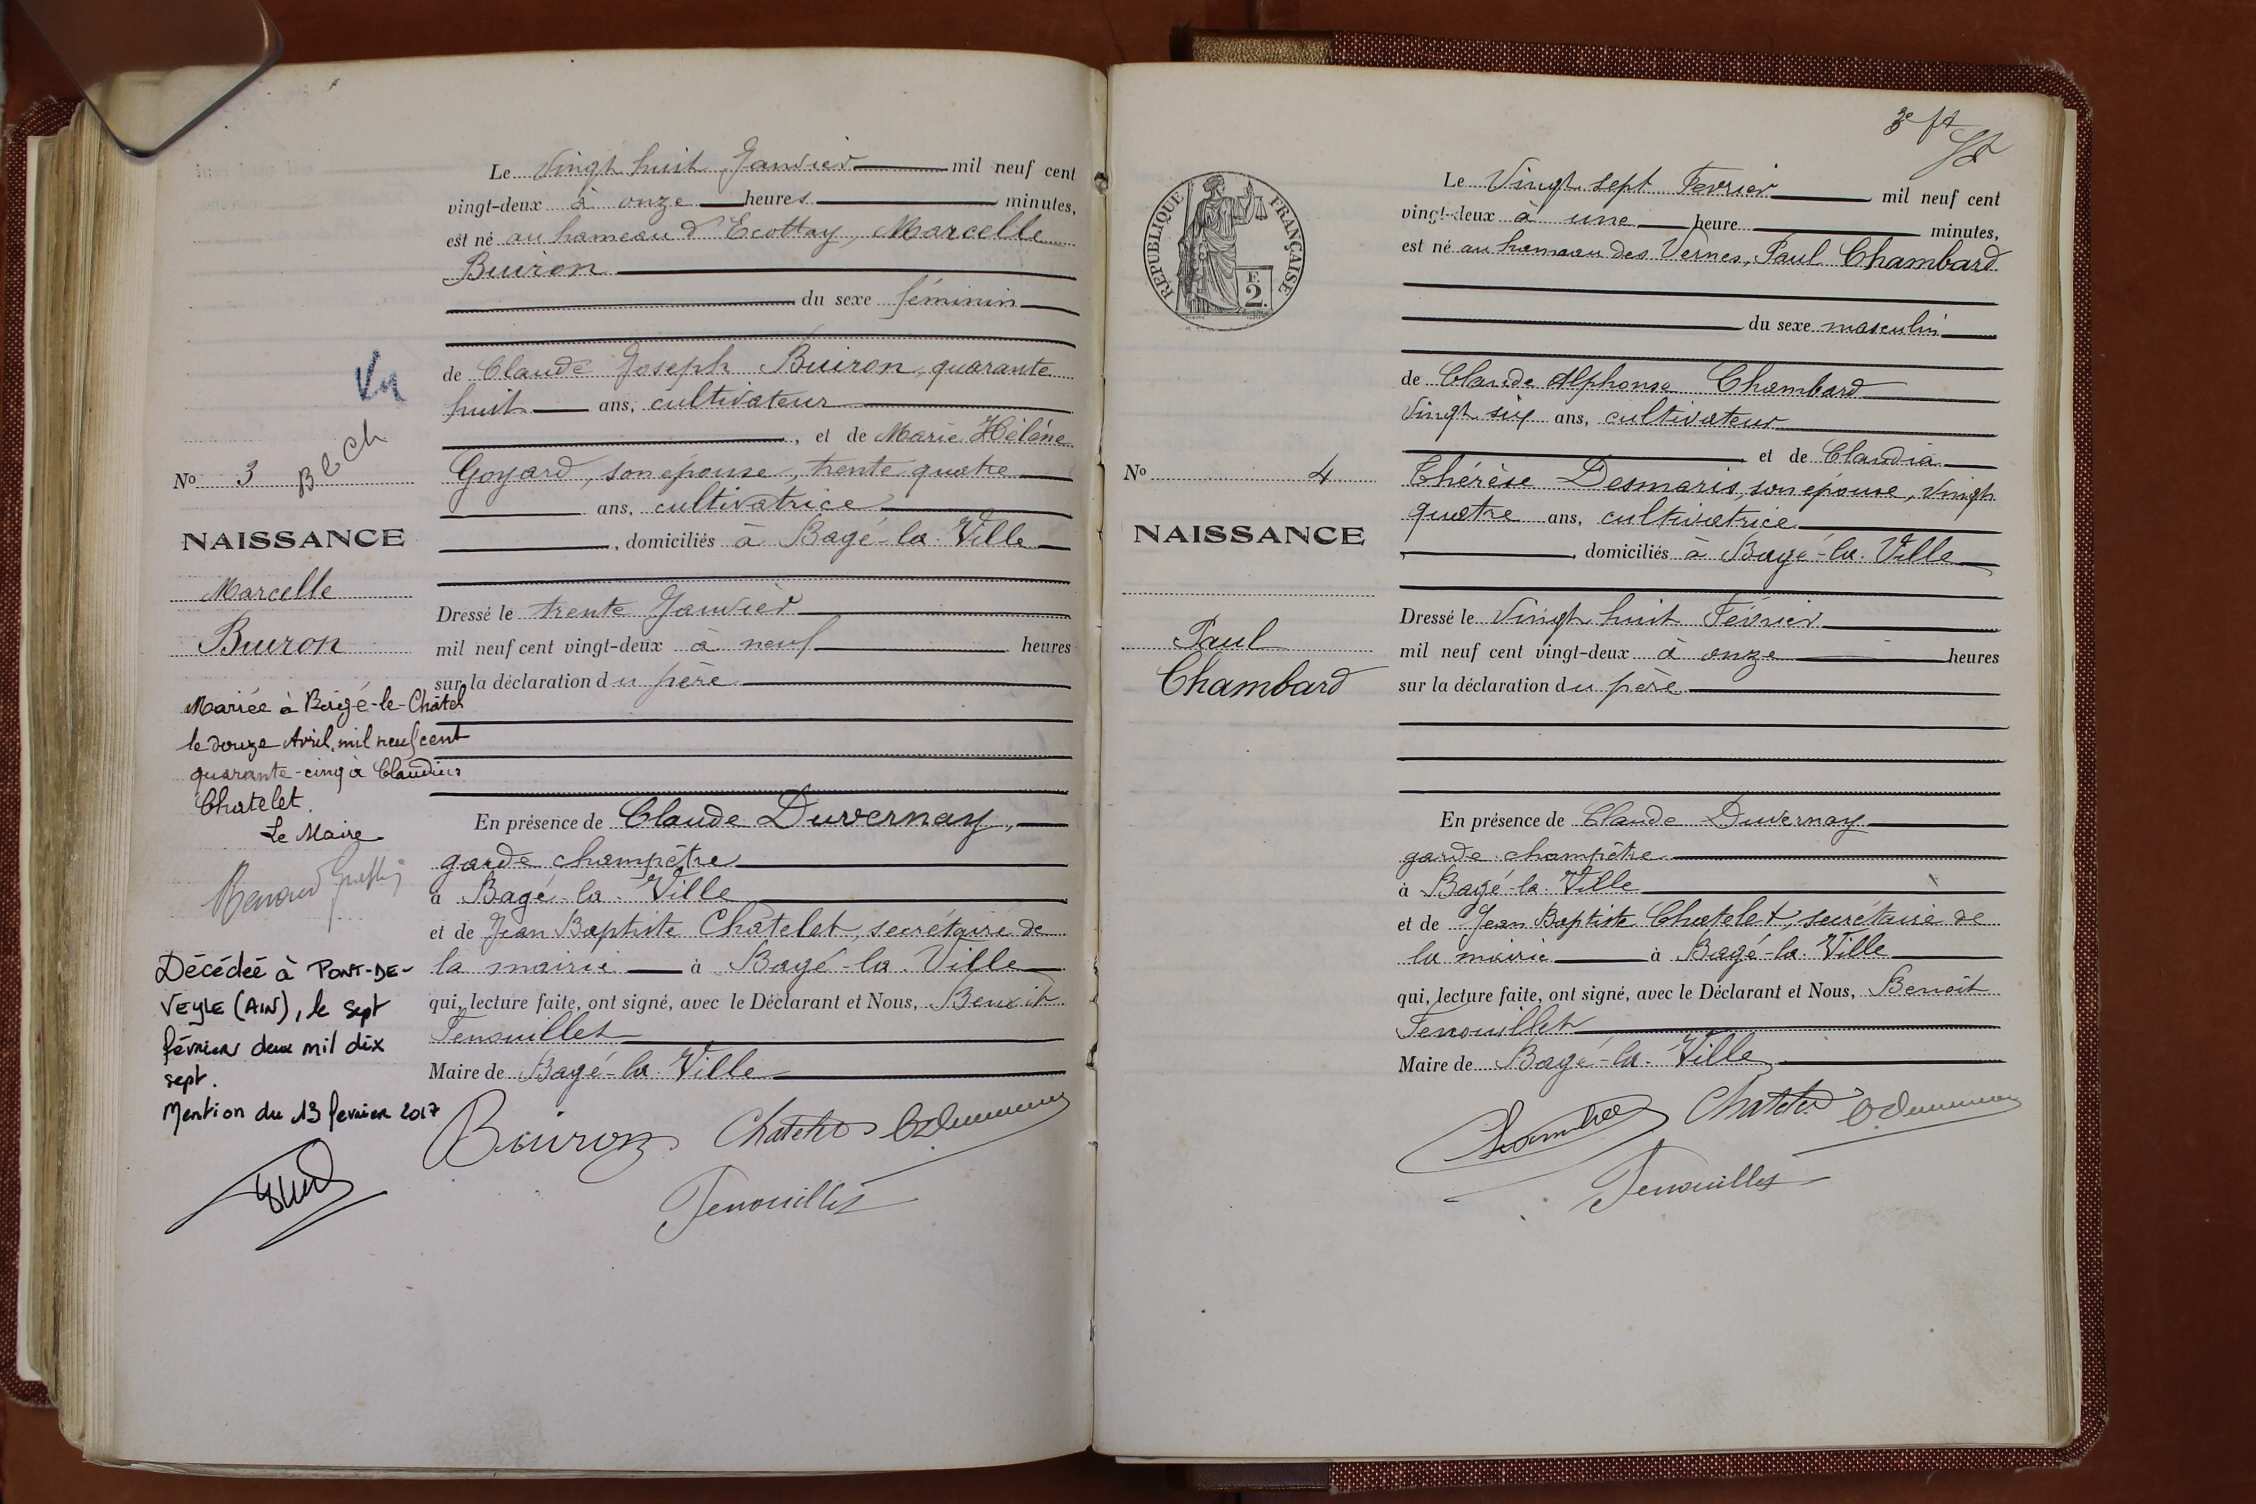 Le Vingt huit Janvier mil neuf cent
vingt-deux à onze heures minutes,
est né au hameau d'Ecottay, Marcelle
Buiron
du sexe féminin
de Claude Joseph Buiron, quarante
huit ans, cultivateur
, et de Marie Hélène
Goyard, son épouse, trente quatre
ans, cultivatrice
, domiciliés à Bagé-la-Ville
Dressé le trente Janvier
mil neuf cent vingt-deux à neuf heures
sur la déclaration du père
En présence de Claude Duvernay,
garde champêtre
à Bagé-la-Ville
et de Jean Baptiste Chatelet, secrétaire de
la mairie à Bagé-la-Ville
qui, lecture faite, ont signé, avec le Déclarant et Nous, Benoit
Fenouillet
Maire de Bagé-la-Ville
Buiron Chatelet
Fenouillet
Vu
No 3
NAISSANCE
Marcelle
Buiron
Mariée à Bâgé-le-Châtel
le douze Avril, mil neuf cent
quarante-cinq à Claudius
Chatelet.
Le Maire
Décédée à PONT-DE-
VEYLE (AIN), le sept
février deux mil dix
sept.
Mention du 13 février 2017
3e ft
REPUBLIQUE FRANÇAISE
2F.
Le Vingt sept Fevrier mil neuf cent
vingt-deux à une heure minutes,
est né au hameau des Vernes, Paul Chambard
du sexe masculin
de Claude Alphonse Chambard
Vingt six ans, cultivateur
et de Claudia
Thérèse Desmaris, son épouse, vingt
quatre ans, cultivatrice
, domiciliés à Bagé-la-Ville
Dressé le Vingt huit Février
mil neuf cent vingt-deux à onze heures
sur la déclaration du père
En présence de Claude Duvernay
garde champêtre
à Bagé-la-Ville
et de Jean Baptiste Chatelet, secrétaire de
la mairie à Bagé-la-Ville
qui, lecture faite, ont signé, avec le Déclarant et Nous, Benoit
Fenouillet
Maire de Bagé-la-Ville
Chatelet
Fenouillet
No 4
NAISSANCE
Paul
Chambard